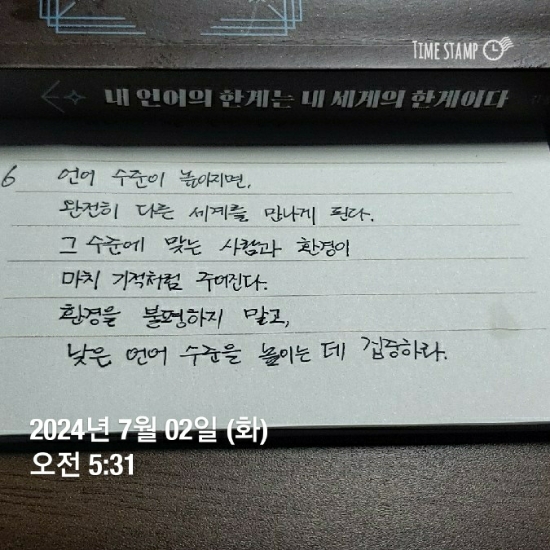 TIME STAMP
내 언어의 한계는 내 세계의 한계이다
6 언어 수준이 높아지면,
완전히 다른 세계를 만나게 된다.
그 수준에 맞는 사람과 환경이
마치 기적처럼 주어진다.
환경을 불평하지 말고,
낮은 언어 수준을 높이는 데 집중하라.
2024년 7월 02일 (화)
오전 5:31